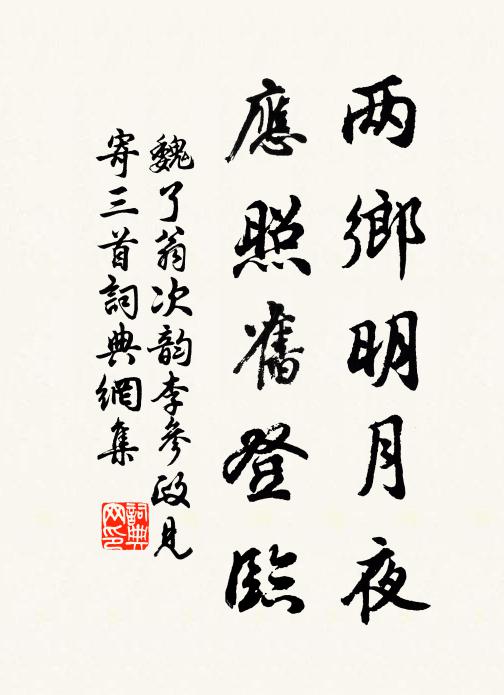 两鄉明月夜
應照舊登臨
魏了翁次韵李參政見
寄三首詞典網集
詞典网印